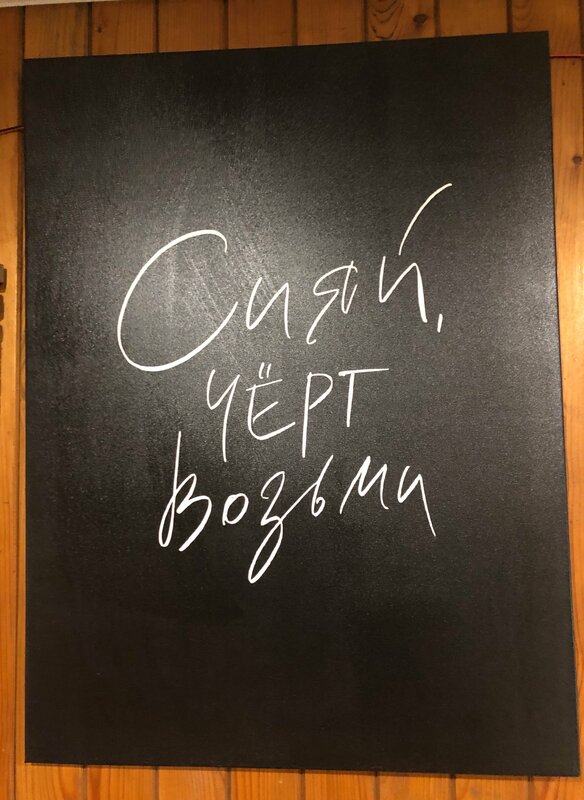 Сияй,
ЧЁРТ
возьми